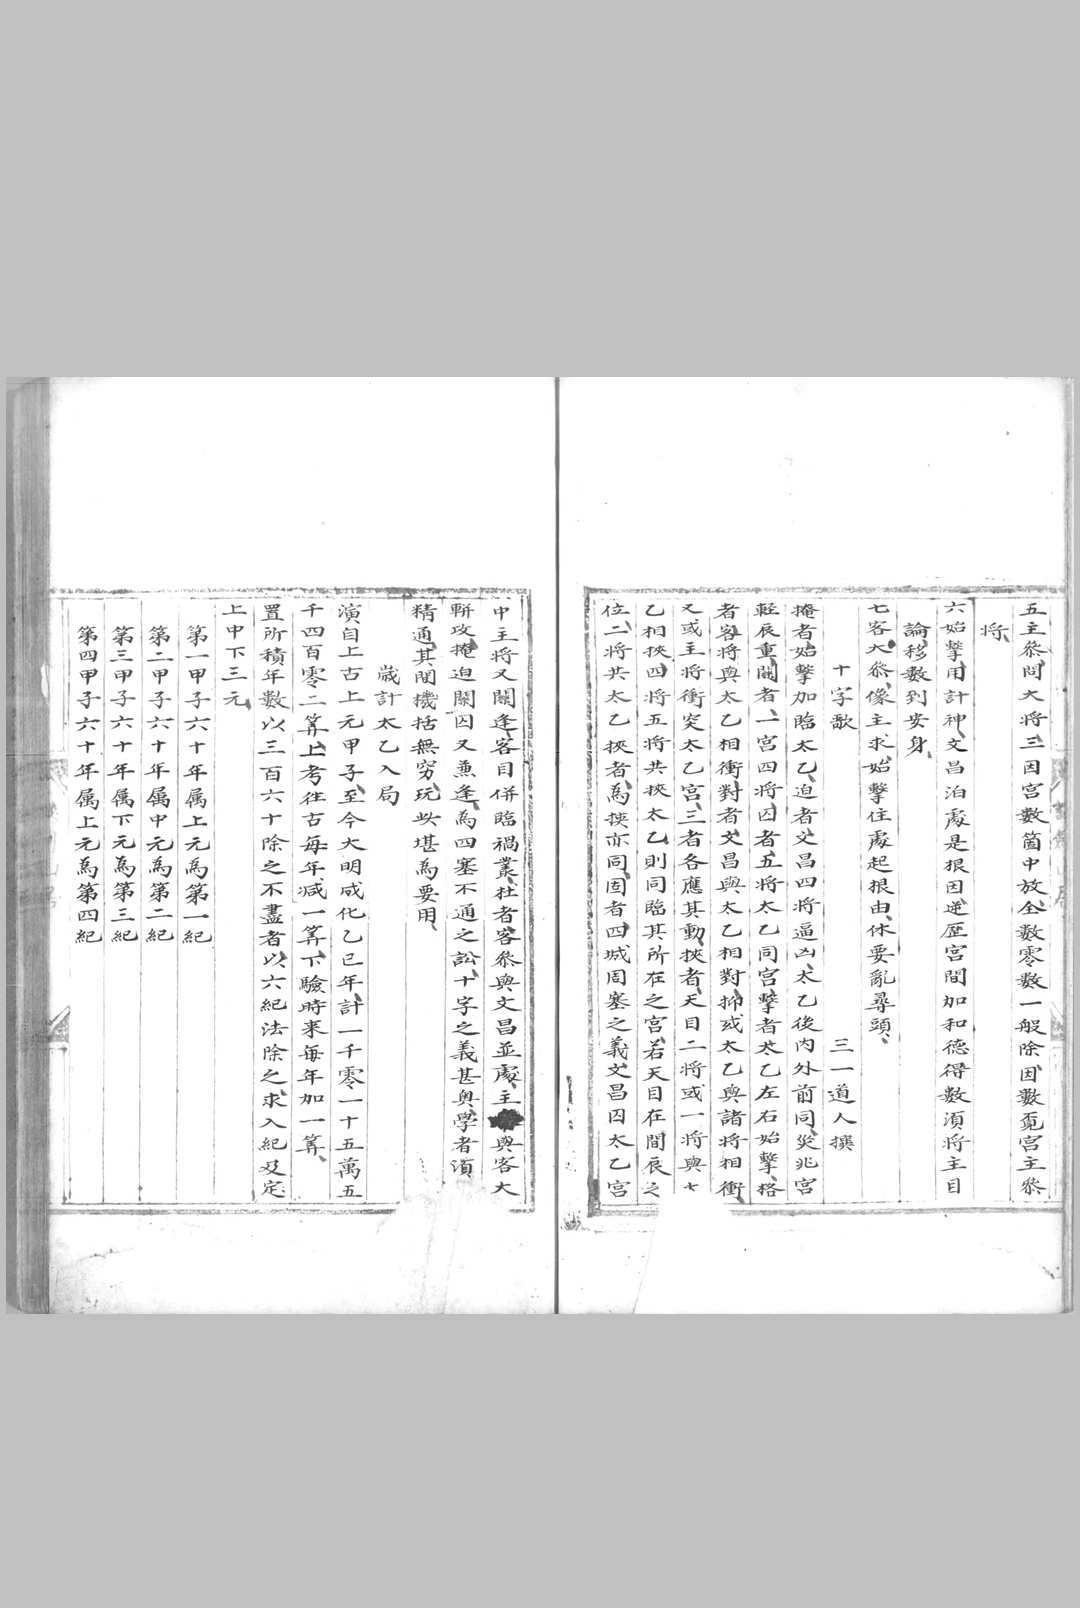 五主參問大将三因宫數箇中放全數零數一般除因數覔宫主參
将
六始擊用計神文昌泊處是根因逆歷宫間加和德得數湏将主目
論移數到安身
七客大參像主求始擊住處起根由休要亂尋頭
十字歌 三一道人撰
掩者始擊加臨太乙迫者文昌四将逼凶太乙後内外前同災兆宫
輕辰重關者一宫四将囚者五将太乙同宫擊者太乙左右始擊格
者客将與太乙相衝對者文昌與太乙相對抑或太乙與諸将相衝
又或主将衝突太乙宫三者各應其動挾者天目二将或一将與
乙相挾四将五将共挾太乙則同臨其所在之宫若天目在間辰之
位二将共太乙挾者為挾亦同固者四城周塞之義文昌囚太乙宫
中主将又關逢客目併臨禍叢杜者客參與文昌並處主 與客大
斬攻掩迫關囚又兼逢為四塞不通之訟十字之義甚奥學者湏
精通其間機括無穷玩此堪為要用
歲計太乙入局
演自上古上元甲子至今大明成化乙巳年計一千零一十五萬五
千四百零二筭上考往古每年减一筭下驗時来每年加一筭
置所積年數以三百六十除之不盡者以六紀法除之求入紀及定
上中下三元
第一甲子六十年属上元為第一紀
第二甲子六十年属中元為第二紀
第三甲子六十年属下元為第三紀
第四甲子六十年属上元為第四紀